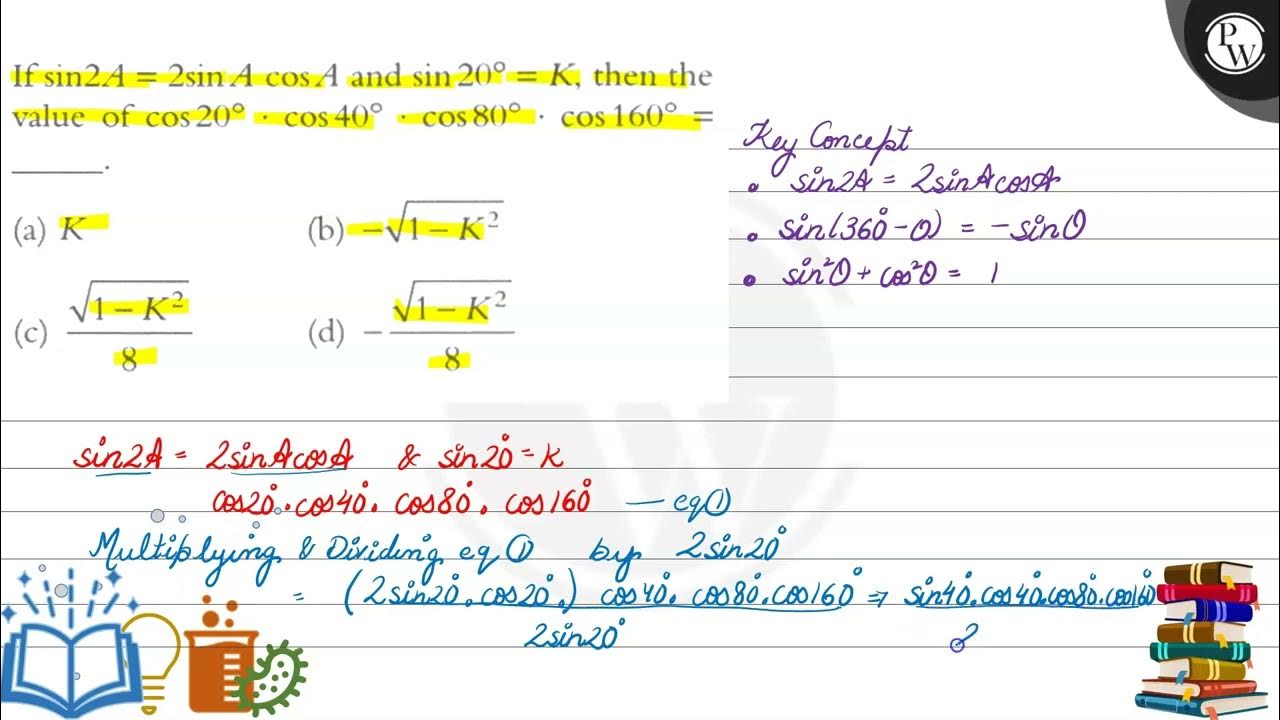 If sin2A = 2sin A cos A and sin 20° = K, then the
value of cos 20° · cos 40° · cos 80° · cos 160° =
______.
(a) K (b) −√(1 − K²)
(c) √(1 − K²)/8 (d) −√(1 − K²)/8
PW
Key Concept
• sin2A = 2sinAcosA
• sin(360° − θ) = −sinθ
• sin²θ + cos²θ = 1
sin2A = 2sinAcosA & sin20° = K
cos20°. cos40°. cos80°. cos160° — eq①
Multiplying & Dividing eq① by 2sin20°
= (2sin20°.cos20°.) cos40°. cos80°.cos160° ⇒ sin40°.cos40°.cos80°.cos160°
2sin20° 2